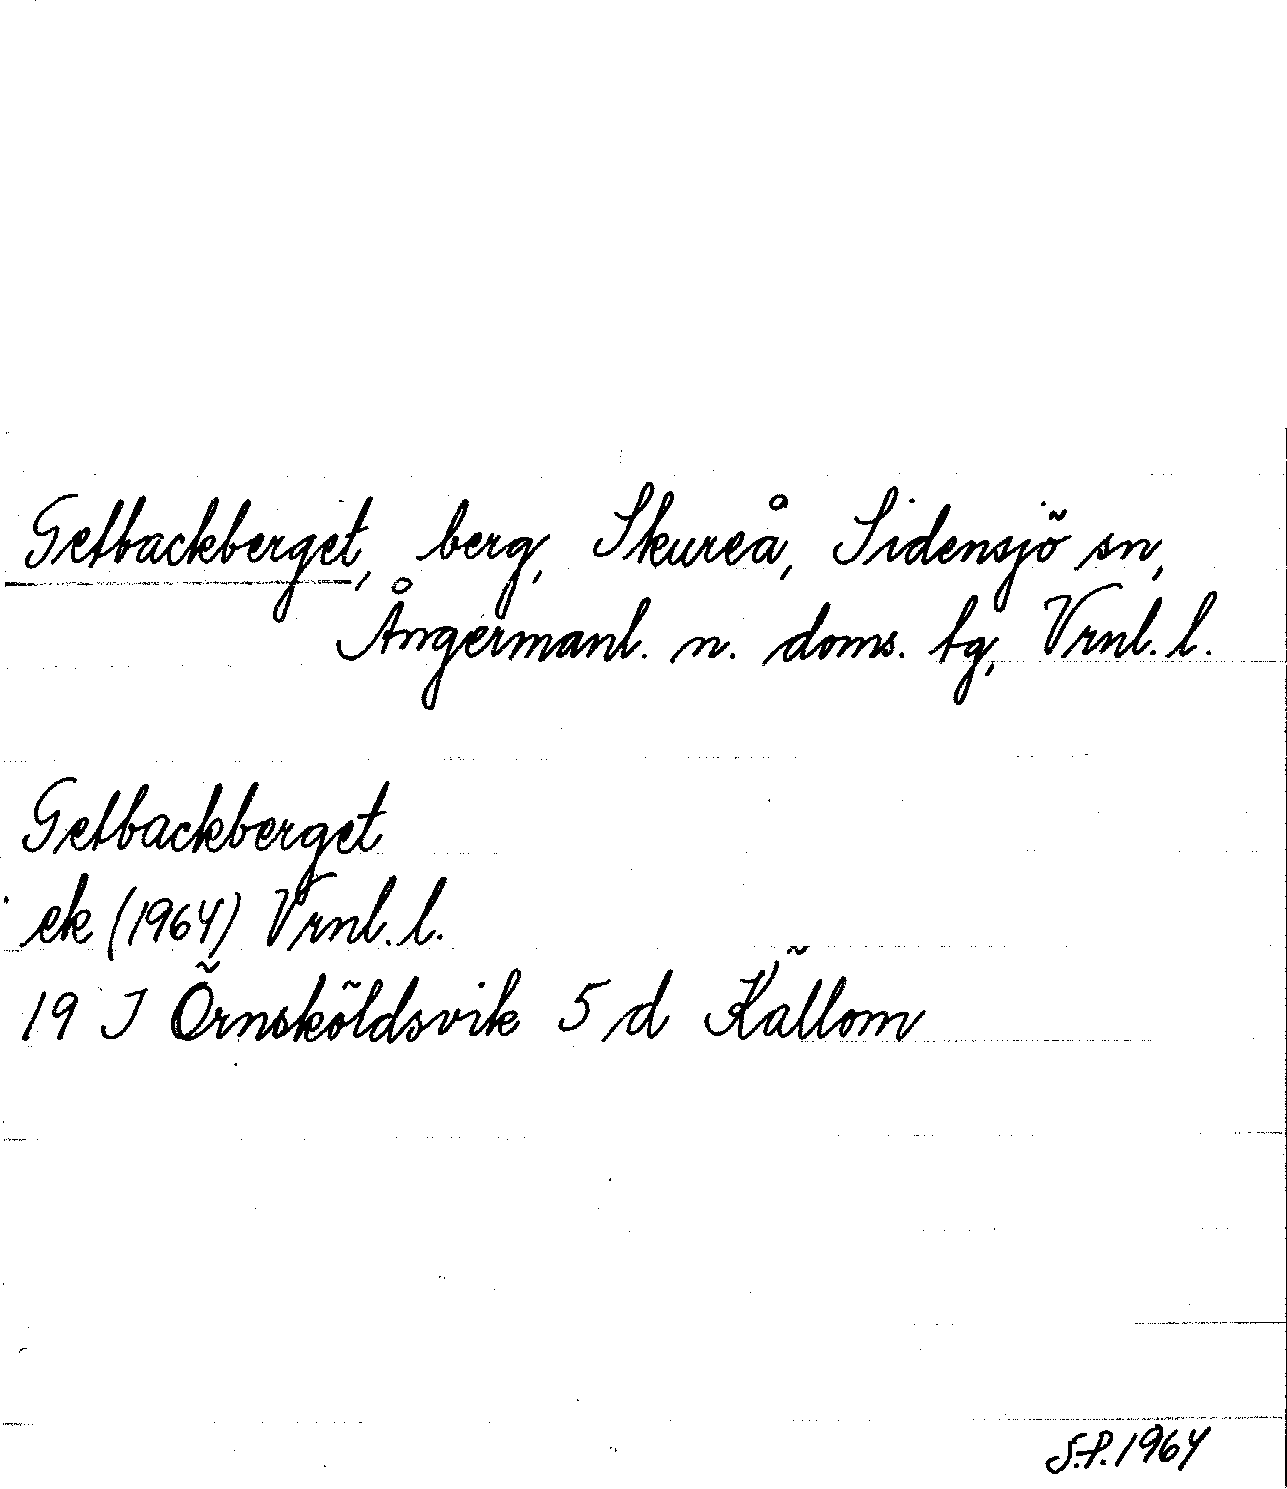 Getbackberget, berg, Skureå, Sidensjö sn,
Ångermanl. n. doms. tg, Vrnl. l.
Getbackberget
ek (1964) Vrnl. l.
19 J Örnsköldsvik 5 d Källom
S.P. 1964